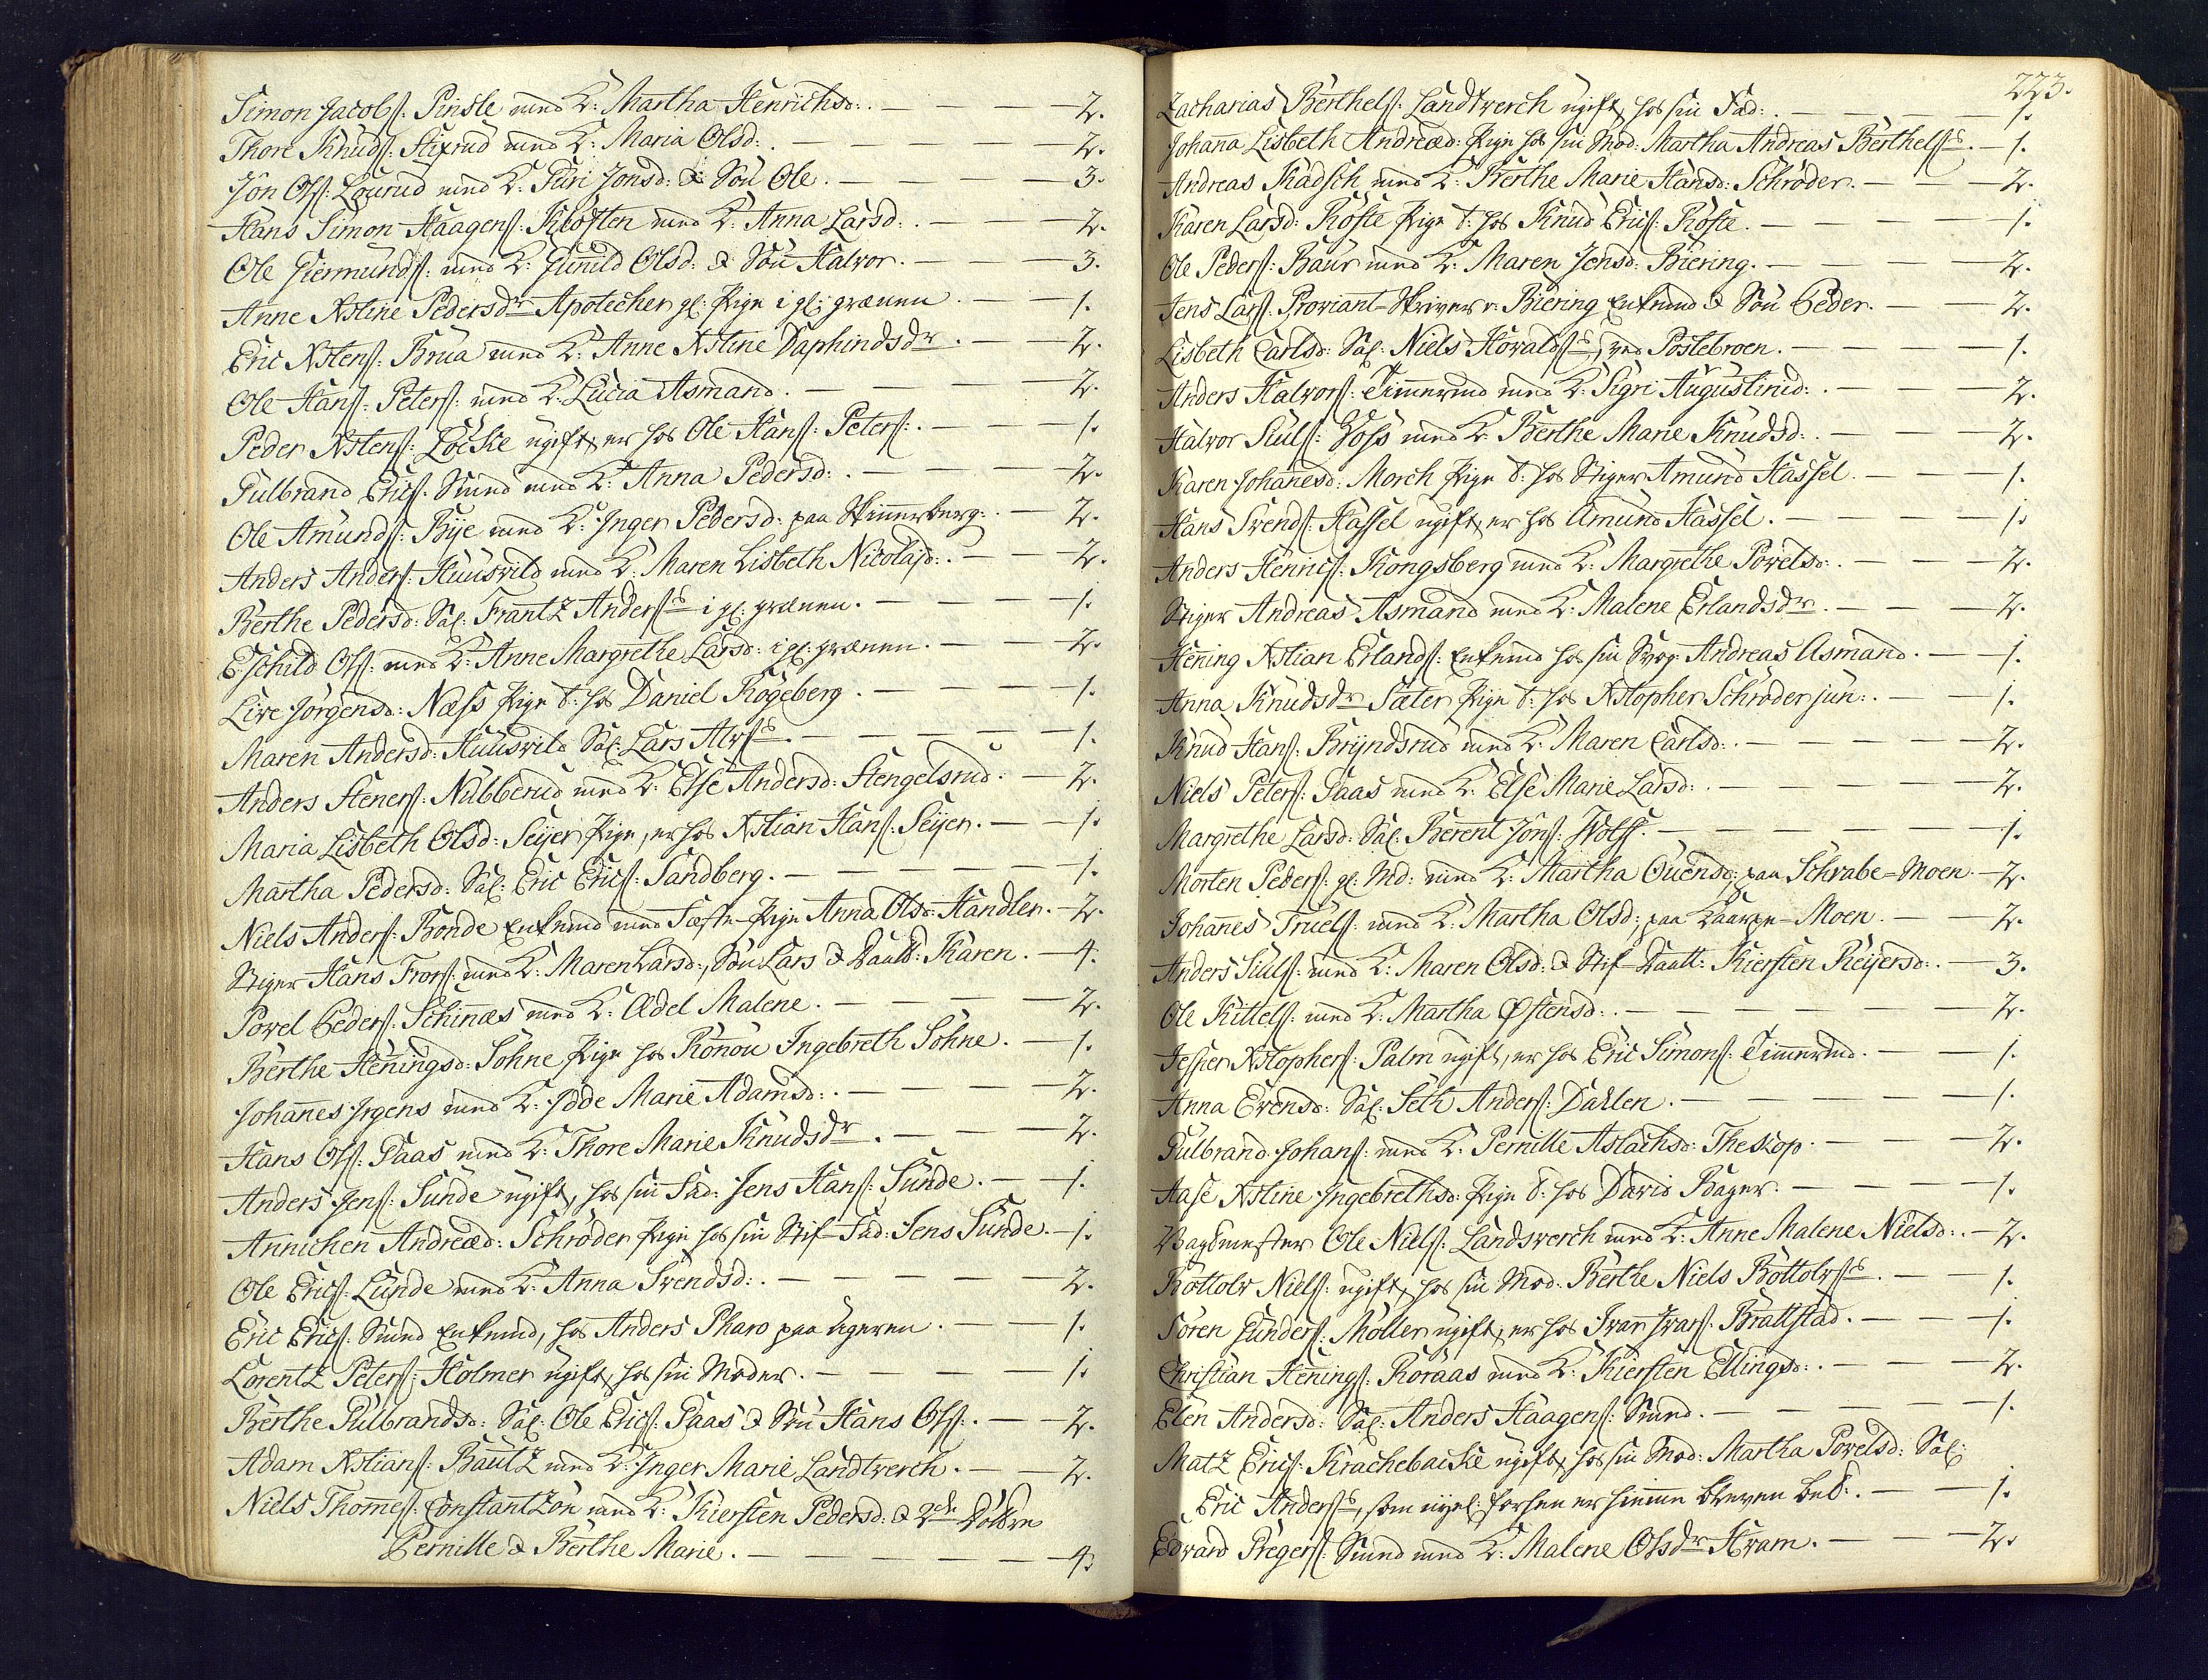 Simon Jacobs: Pinsle med K: Martha Henrichsd: . — — — 2.
Thore Knuds: Stixrud med K: Maria Olsd: . — — — 2.
Jon Ols: Lourud med K: Guri Jonsd: & Søn Ole. — — — 3.
Hans Simon Haagens: Kloften med K: Anna Larsd: . — — 2.
Ole Giermunds: med K: Gunild Olsd: & Søn Halvor. — — 3.
Anne Xstine Pedersdr Apotecher gl: Pige i gl: grænen. — — 1.
Eric Xstens: Brua med K: Anne Xstine Daphindsdr. — — 2.
Ole Hans: Peters: med K: Lucia Asmand. — — — 2.
Peder Xstens: Locke ugift, er hos Ole Hans: Peters: . — — 1.
Gulbrand Erics: Smed med K: Anna Pedersd: . — — — 2.
Ole Amunds: Bye med K: Inger Pedersd: paa Skinnerberg: . — 2.
Anders Anders: Huusvild med K: Maren Lisbeth Nicolajd: . — — 2.
Berthe Pedersd: Sal: Frantz Anders: i gl: grænen. — — — 1.
Eschild Ols: med K: Anne Margrethe Larsd: i gl: grænen. — — 2.
Live Jørgensd: Næss Pige t: hos Daniel Kogeberg. — — — 1.
Maren Andersd: Huusvild Sal: Lars Alvs: . — — — 1.
Anders Steners: Nubberud med K: Else Andersd: Stengelsrud. — 2.
Maria Lisbeth Olsd: Seyer Pige, er hos Xstian Hans: Seyer. — — 1.
Martha Pedersd: Sal: Eric Erics: Sandberg. — — — 1.
Niels Anders: Bonde Enkemd med Fæste-Pige Anna Olsd: Handler. — 2.
Stiger Hans Frors: med K: Maren Larsd:, Søn Lars & Daatt: Karen. — 4.
Powel Peders: Schinnæs med K: Ædel Malene. — — — 2.
Berthe Heningsd: Sohne Pige hos Kono: Ingebreth Sohne. — 1.
Johannes Irgens med K: Idde Marie Adamsd: . — — — 2.
Hans Ols: Gaas med K: Thore Marie Knudsdr. — — — 2.
Anders Jens: Sunde ugift, hos sin Fad: Jens Hans: Sunde. — 1.
Annichen Andreæd: Schrøder Pige hos sin Stif-Fad: Jens Sunde. — 1.
Ole Erics: Lunde med K: Anna Svendsd: . — — — 2.
Eric Erics: Smed Enkemd, hos Anders Pharo paa Ageren. — — 1.
Lorentz Peters: Holmer ugift, hos sin Moder. — — — 1.
Berthe Gulbrandsd: Sal: Ole Erics: Gaas & Søn Hans Ols: . — — 2.
Adam Xstians: Bautz med K: Inger Marie Landtverch. — — 2.
Niels Thommes: Constantzon med K: Kiersten Pedersd: & 2de Døttre
Pernille & Berthe Marie. — — — — 4.
223.
Zacharias Berthels: Landtverch ugift, hos sin Fad: . — — — 1.
Johana Lisbeth Andreæd: Pige hos sin Mod: Martha Andreas Berthels: . — 1.
Andreas Kadsch med K: Berthe Marie Hansd: Schrøder. — — 2.
Karen Larsd: Koste Pige t: hos Knud Erics: Koste. — — — 1.
Ole Peders: Baur med K: Maren Jensd: Biering. — — — 2.
Jens Lars: Proviant-Skriver v: Biering Enkemd & Søn Peder. — — 2.
Lisbeth Carlsd: Sal: Niels Howalds:, ved Postebroen. — — — 1.
Anders Halvors: Timmermd med K: Sigri Augustinid: . — — 2.
Halvor Siuls: Voss med K: Berthe Marie Knudsd: . — — 2.
Karen Johanesd: Morch Pige t: hos Stiger Amund Hassel. — — 1.
Hans Svends: Hassel ugift, er hos Amund Hassel. — — — 1.
Anders Henrics: Kongsberg med K: Margrethe Powelsd: . — — 2.
Stiger Andreas Asmand med K: Malene Erlandsdr. — — — 2.
Hening Xstian Erlands: Enkemd hos sin Svog: Andreas Asmand. — 1.
Anna Knudsdr Sæter Pige t: hos Xstopher Schrøder jun: . — — 1.
Knud Hans: Bryndsrud med K: Maren Carlsd: . — — — 2.
Niels Peters: Gaas med K: Else Marie Larsd: . — — — 2.
Margrethe Larsd: Sal: Berent Jons: Wolff. — — — — 1.
Morten Peders: gl: Md: med K: Martha Ouensd: paa Schrabe-Moen. — 2.
Johanes Truels: med K: Martha Olsd:, paa Kaarpe-Moen. — — 2.
Anders Siuls: med K: Maren Olsd: & Stif-Daatt: Kiersten Reyersd: . — 3.
Ole Kittels: med K: Martha Østensd: . — — — — 2.
Jesper Xstophers: Palm ugift, er hos Eric Simons: Timmermd. — — 1.
Anna Evensd: Sal: Seth Anders: Dahlen. — — — — 1.
Gulbrand Johans: med K: Pernille Aslachsd: Theskop. — — — 2.
Aase Xstine Ingebrethsd: Pige t: hos David Bager. — — — 1.
Vagtmester Ole Niels: Landsverch med K: Anne Malene Nielsd: . — 2.
Bottolv Niels: ugift, hos sin Mod: Berthe Niels Bottolvs: . — — 1.
Søren Gunders: Møller ugift, er hos Ivar Ivars: Brattstad. — — 1.
Christian Henings: Roraas med K: Kiersten Ellingsd: . — — 2.
Elen Andersd: Sal: Anders Haagens: Smed. — — — — 1.
Matz Erics: Krachebacke ugift, hos sin Mod: Martha Powelsd: Sal:
Eric Anders:, som forhen er bleven — — 1.
Edvard Gregers: Smed med K: Malene Olsdr Hvam. — — — 2.